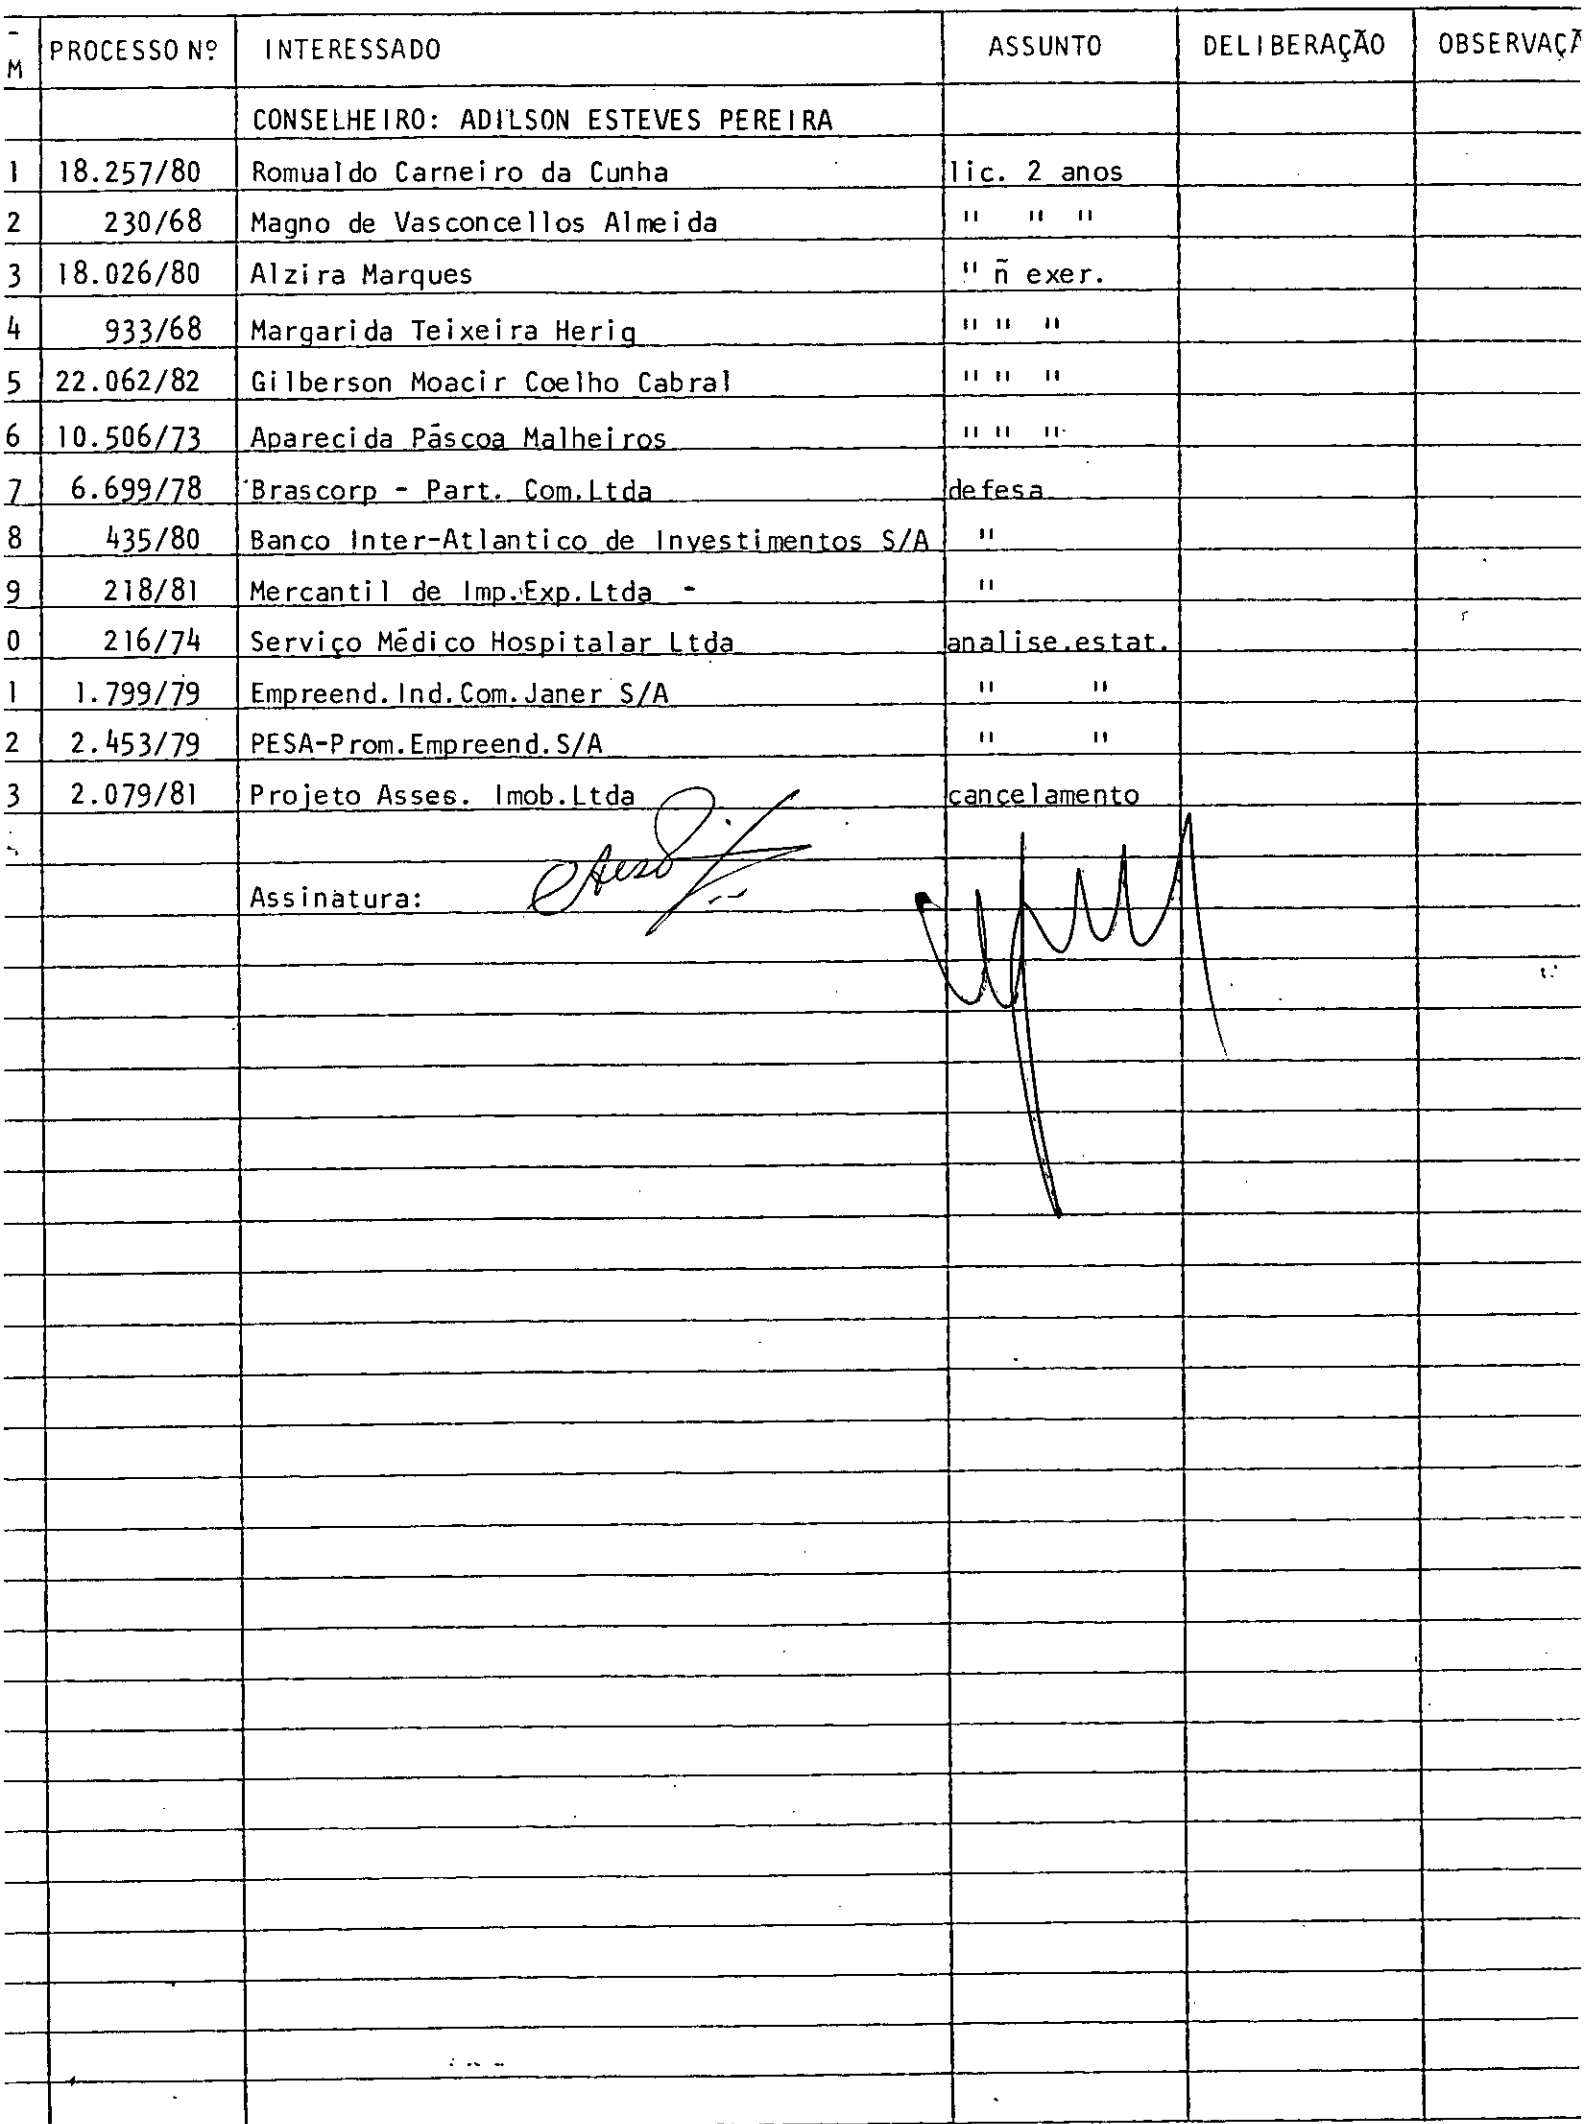 - M PROCESSO Nº INTERESSADO ASSUNTO DELIBERAÇÃO OBSERVAÇÃ
CONSELHEIRO: ADILSON ESTEVES PEREIRA
1 18.257/80 Romualdo Carneiro da Cunha lic. 2 anos
2 230/68 Magno de Vasconcellos Almeida " " "
3 18.026/80 Alzira Marques " ñ exer.
4 933/68 Margarida Teixeira Herig " " "
5 22.062/82 Gilberson Moacir Coelho Cabral " " "
6 10.506/73 Aparecida Páscoa Malheiros " " "
7 6.699/78 Brascorp - Part. Com.Ltda defesa
8 435/80 Banco Inter-Atlantico de Investimentos S/A "
9 218/81 Mercantil de Imp.Exp.Ltda - "
0 216/74 Serviço Médico Hospitalar Ltda analise.estat.
1 1.799/79 Empreend.Ind.Com.Janer S/A " "
2 2.453/79 PESA-Prom.Empreend.S/A " "
3 2.079/81 Projeto Asses. Imob.Ltda cancelamento
Assinatura: